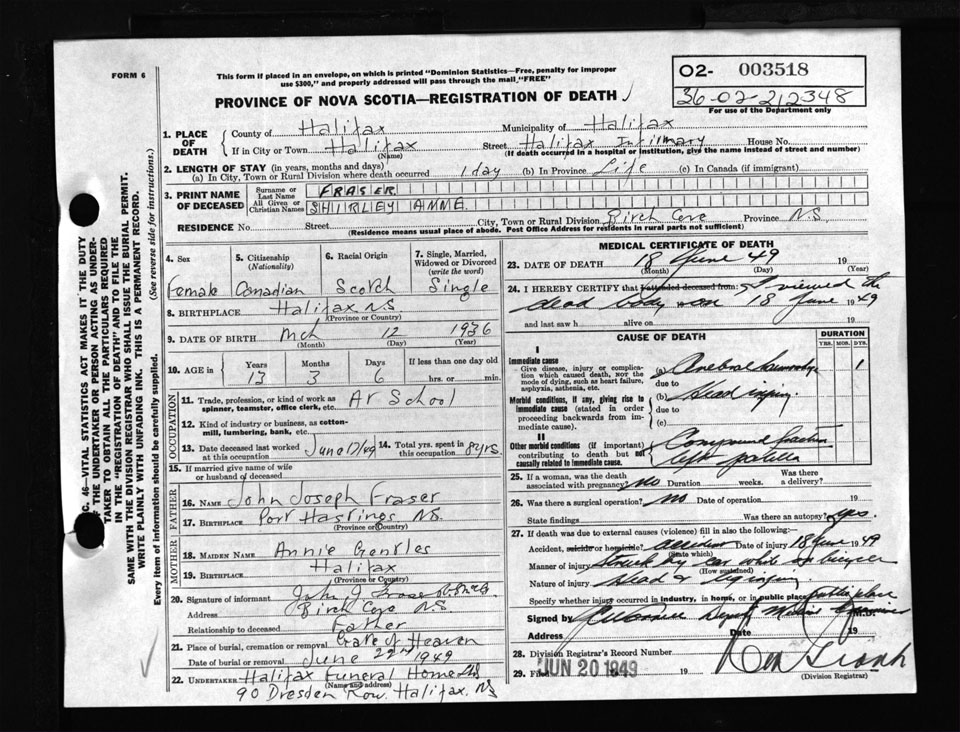 FORM 6
This form if placed in an envelope, on which is printed "Dominion Statistics—Free, penalty for improper
use $300," and properly addressed will pass through the mail "FREE"
PROVINCE OF NOVA SCOTIA—REGISTRATION OF DEATH
O2- 003518
36-02-212348
For use of the Department only
1. PLACE OF DEATH
County of Halifax Municipality of Halifax
If in City or Town Halifax (Name) Street Halifax Infirmary House No.
(If death occurred in a hospital or institution, give the name instead of street and number)
2. LENGTH OF STAY (in years, months and days)
(a) In City, Town or Rural Division where death occurred 1 day (b) In Province Life (c) In Canada (if immigrant)
3. PRINT NAME OF DECEASED
Surname or Last Name FRASER
All Given or Christian Names SHIRLEY ANNE
RESIDENCE No. Street City, Town or Rural Division Birch Cove Province N.S.
(Residence means usual place of abode. Post Office Address for residents in rural parts not sufficient)
4. Sex Female
5. Citizenship (Nationality) Canadian
6. Racial Origin Scotch
7. Single, Married, Widowed or Divorced (write the word) Single
8. BIRTHPLACE Halifax N.S.
(Province or Country)
9. DATE OF BIRTH Mch 12 1936
(Month) (Day) (Year)
10. AGE in Years 13 Months 3 Days 6 If less than one day old hrs. or min.
OCCUPATION
11. Trade, profession, or kind of work as spinner, teamster, office clerk, etc. At School
12. Kind of industry or business, as cotton-mill, lumbering, bank, etc.
13. Date deceased last worked at this occupation June 17/49 14. Total yrs. spent in this occupation 8 yrs.
15. If married give name of wife or husband of deceased
FATHER
16. NAME John Joseph Fraser
17. BIRTHPLACE Port Hastings N.S.
(Province or Country)
MOTHER
18. MAIDEN NAME Annie Gentles
19. BIRTHPLACE Halifax
(Province or Country)
20. Signature of informant John J. Fraser
Address Birch Cove N.S.
Relationship to deceased Father
21. Place of burial, cremation or removal Gate of Heaven
Date of burial or removal June 22nd 1949
22. UNDERTAKER Halifax Funeral Home Ltd
(Name and address)
90 Dresden Row, Halifax, N.S.
MEDICAL CERTIFICATE OF DEATH
23. DATE OF DEATH 18 June 49 19
(Month) (Day) (Year)
24. I HEREBY CERTIFY that I attended deceased from: I viewed the
dead body on 18 June 1949
and last saw h alive on 19
CAUSE OF DEATH
DURATION
YRS. MOS. DYS.
I
Immediate cause
Give disease, injury or complication which caused death, NOT the mode of dying, such as heart failure, asphyxia, asthenia, etc.
(a) Cerebral haemorrhage 1
due to
Morbid conditions, if any, giving rise to immediate cause (stated in order proceeding backwards from immediate cause).
(b) Head injury
due to
(c)
II
Other morbid conditions (if important) contributing to death but not causally related to immediate cause.
Compound fracture
left patella
25. If a woman, was the death associated with pregnancy? No Duration weeks. Was there a delivery?
26. Was there a surgical operation? No Date of operation 19
State findings Was there an autopsy? Yes.
27. If death was due to external causes (violence) fill in also the following:—
Accident, suicide or homicide? Accident Date of injury 18 June 1949
(State which)
Manner of injury Struck by car while on bicycle
(How sustained)
Nature of injury Head & leg injury
Specify whether injury occurred in industry, in home, or in public place public place
Signed by Deputy Medical Examiner M.D.
Address Date 19
28. Division Registrar's Record Number
29. Filed JUN 20 1949 19
(Division Registrar)
SEC. 46—VITAL STATISTICS ACT MAKES IT THE DUTY
THE UNDERTAKER OR PERSON ACTING AS UNDER-
TAKER TO OBTAIN ALL THE PARTICULARS REQUIRED
IN THE "REGISTRATION OF DEATH" AND TO FILE THE
SAME WITH THE DIVISION REGISTRAR WHO SHALL ISSUE THE BURIAL PERMIT.
WRITE PLAINLY WITH UNFADING INK. THIS IS A PERMANENT RECORD.
Every item of information should be carefully supplied. (See reverse side for instructions.)